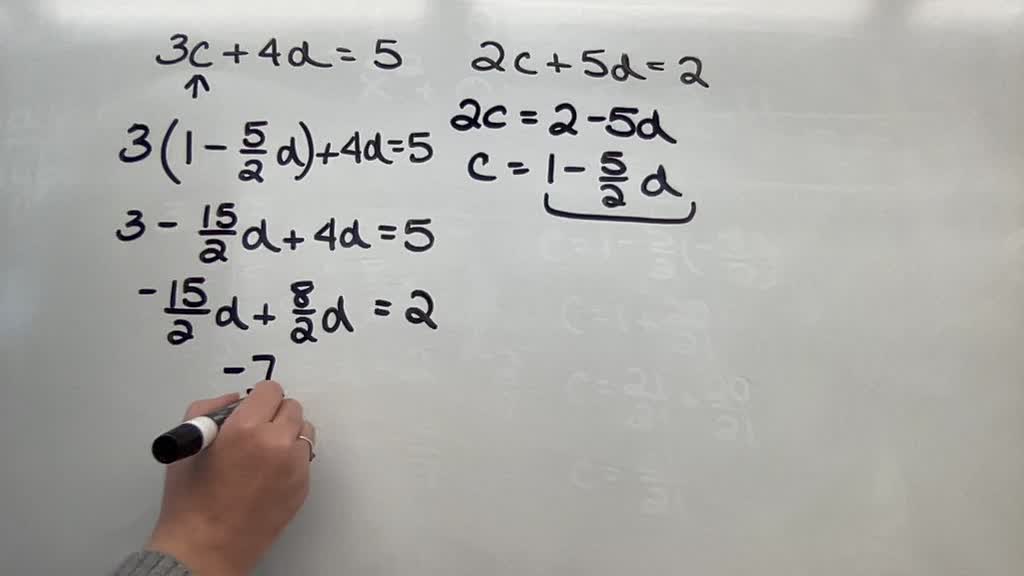 3c + 4d = 5
↑
3(1 - 5/2 d) + 4d = 5
3 - 15/2 d + 4d = 5
-15/2 d + 8/2 d = 2
-7
2c + 5d = 2
2c = 2 - 5d
c = 1 - 5/2 d